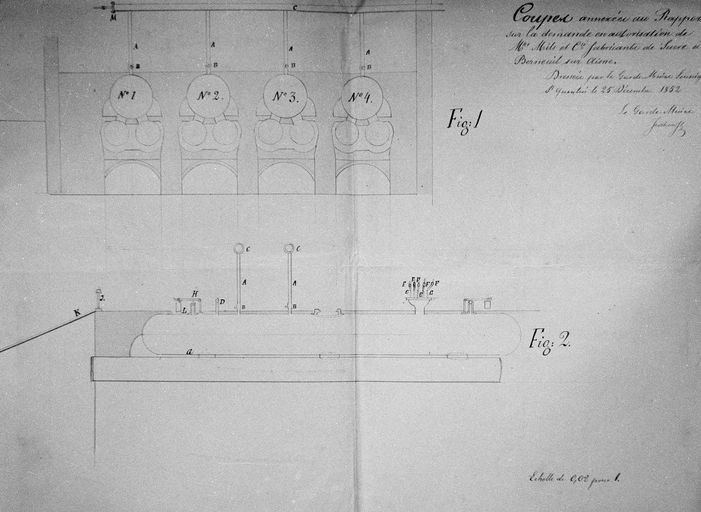 Coupes annexées au Rapport
sur la demande en autorisation de
Mrs Mile et Cie fabricants de Sucre à
Berneuil sur Aisne.
Dressée par le Garde Mines Soussigné
St Quentin le 25 Décembre 1852
Le Garde Mines
M C
A A A A
B B B B
No 1 No 2. No 3. No 4.
Fig: 1
C C
A A
H D B B
L
K
a
Fig: 2.
Echelle de 0,02 pour 1.